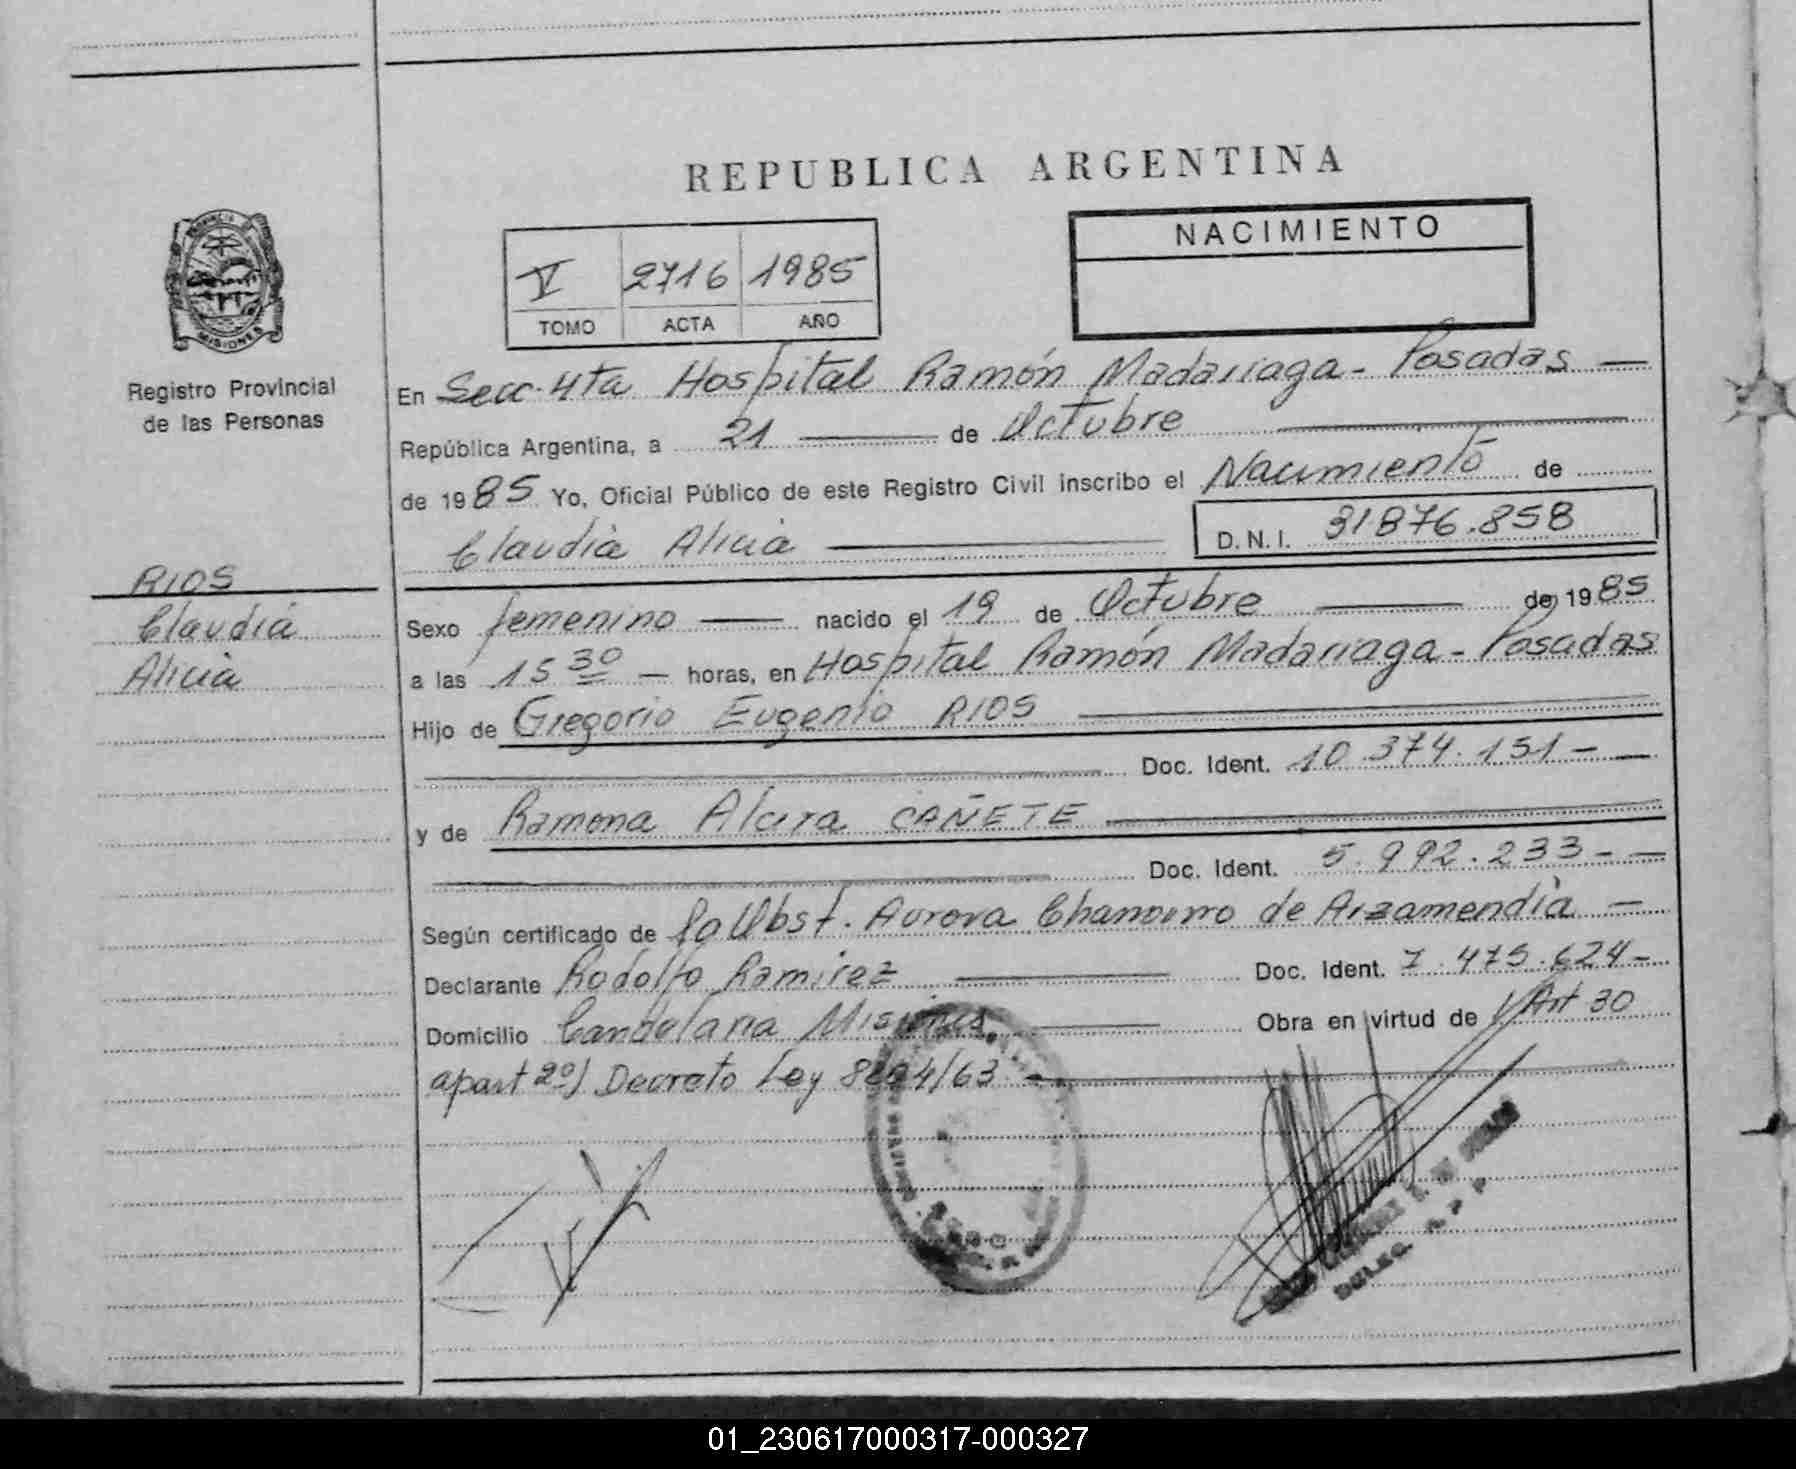 REPUBLICA ARGENTINA
PROVINCIA DE
MISIONES
Registro Provincial
de las Personas
V 2716 1985
TOMO ACTA AÑO
NACIMIENTO
En Secc. 4ta Hospital Ramón Madariaga - Posadas —
República Argentina, a 21 — de Octubre —
de 1985 Yo, Oficial Público de este Registro Civil inscribo el Nacimiento de
Claudia Alicia — D.N.I. 31876.858
RIOS
Claudia
Alicia
Sexo femenino — nacido el 19 de Octubre — de 1985
a las 15 30 — horas, en Hospital Ramón Madariaga - Posadas
Hijo de Gregorio Eugenio RIOS —
— Doc. Ident. 10.374.151 - —
y de Ramona Alcira CAÑETE —
— Doc. Ident. 5.992.233 - —
Según certificado de la Obst. Aurora de Arzamendia —
Declarante Rodolfo Ramirez — Doc. Ident. 7.475.624 -
Domicilio Candelaria Misiones — Obra en virtud de Art 30
apart 2º) Decreto Ley 8204/63 —
DELEG. R. P. P.
01_230617000317-000327